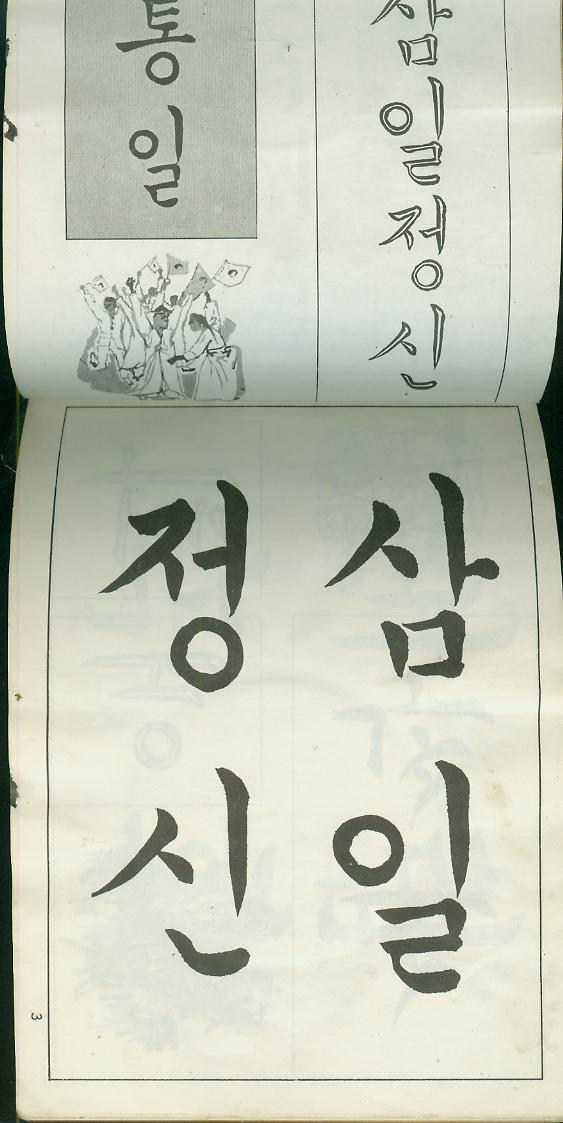 삼일정신
통일
삼일
정신
3